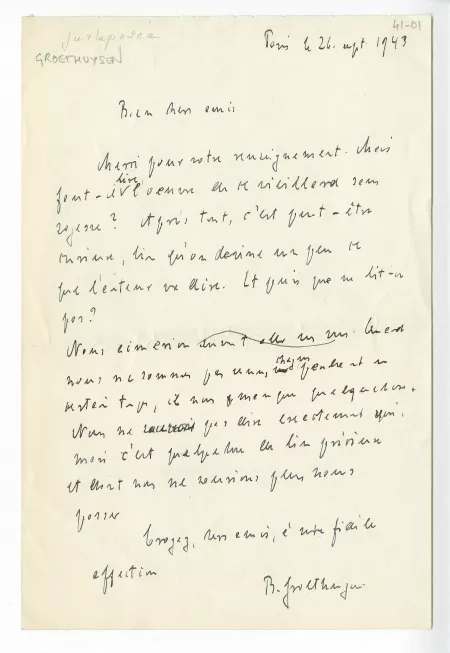 41-01
GROETHUYSEN
Paris le 26. sept 1943
Bien chers amis
Merci pour votre renseignement. Mais
faut-il lire l'oeuvre de ce vieillard sans
sagesse ? Après tout, c'est peut-être
curieux, bien qu'on devine un peu ce
que l'auteur va dire. Et puis que ne lit-on
pas ?
Nous aimerions vous. Quand
nous ne sommes pas pendant un
certain temps, il nous manque quelque chose.
Nous ne pas dire exactement quoi,
mais c'est quelque chose de bien précieux
et dont nous ne saurions plus nous
passer
Croyez, chers amis, à notre fidèle
affection
B. Groethuysen